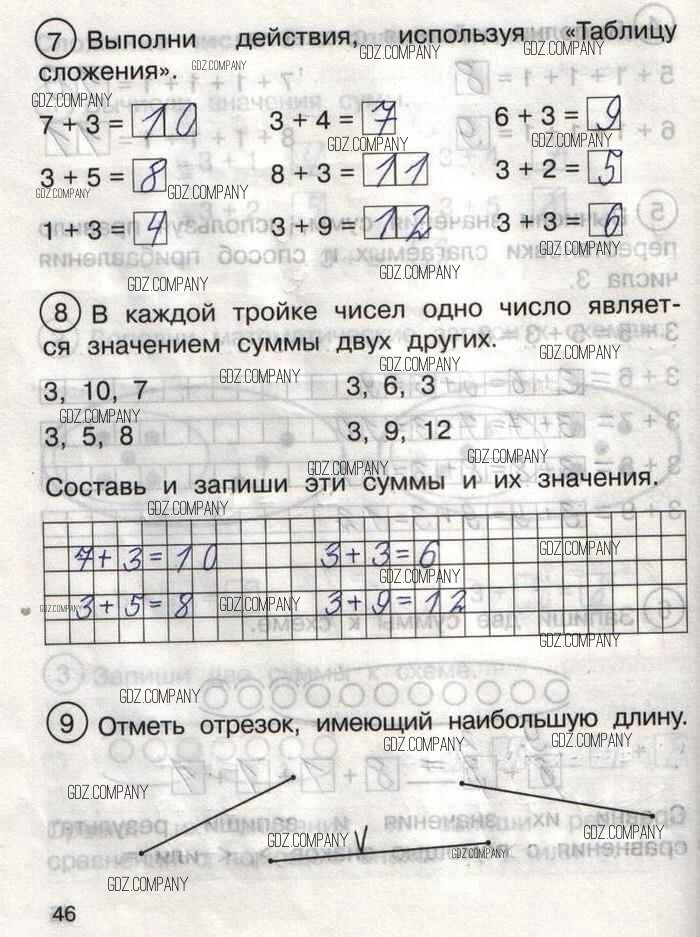 7 Выполни действия, используя «Таблицу
сложения».
7 + 3 = 10 3 + 4 = 7 6 + 3 = 9
3 + 5 = 8 8 + 3 = 11 3 + 2 = 5
1 + 3 = 4 3 + 9 = 12 3 + 3 = 6
8 В каждой тройке чисел одно число являет-
ся значением суммы двух других.
3, 10, 7 3, 6, 3
3, 5, 8 3, 9, 12
Составь и запиши эти суммы и их значения.
7+3=10 3+3=6
3+5=8 3+9=12
9 Отметь отрезок, имеющий наибольшую длину.
V
46
GDZ.COMPANY